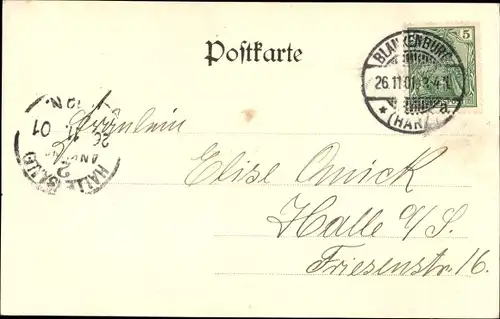 Postkarte
5
BLANKENBURG
26.11.01. 3-4N.
* (HARZ) a.
HALLE (SAALE)
26
01
N.
Fräulein
Elise Quick
Halle a/S.
Friesenstr. 16.